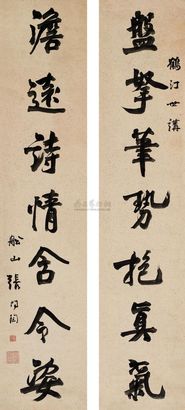 盤拏筆勢抱真氣
鶴汀世講
澹遠詩情含令姿
船山張問陶